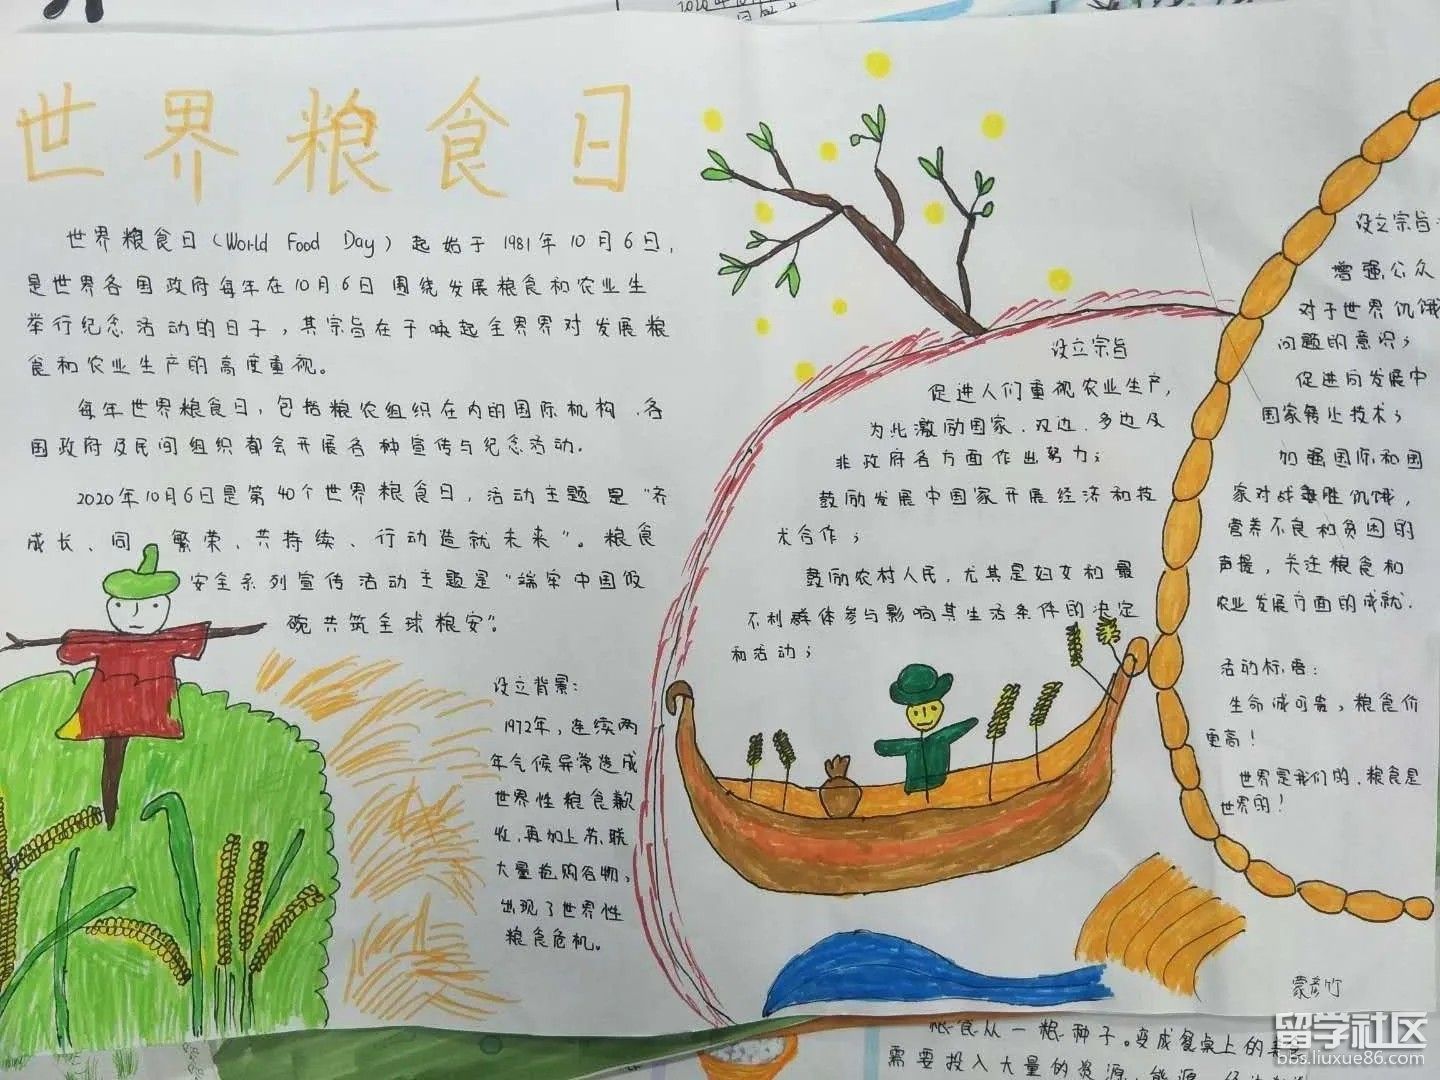 世界粮食日
世界粮食日(World Food Day)起始于1981年10月6日,
是世界各国政府每年在10月6日围绕发展粮食和农业生
举行纪念活动的日子,其宗旨在于唤起全界界对发展粮
食和农业生产的高度重视。
每年世界粮食日,包括粮农组织在内的国际机构、各
国政府及民间组织都会开展各种宣传与纪念活动.
2020年10月6日是第40个世界粮食日,活动主题是“齐
成长、同 繁荣、共持续、行动造就未来”。粮食
安全系列宣传活动主题是“端牢中国饭
碗共筑全球粮安”。
设立背景:
1972年,连续两
年气候异常造成
世界性粮食歉
收,再加上苏联
大量抢购谷物,
出现了世界性
粮食危机。
设立宗旨
促进人们重视农业生产,
为此激励国家、双边、多边及
非政府各方面作出努力;
鼓励发展中国家开展经济和技
术合作;
鼓励农村人民,尤其是妇女和最
不利群体参与影响其生活条件的决定
和活动;
设立宗旨:
增强公众
对于世界饥饿
问题的意识;
促进向发展中
国家转让技术;
加强国际和国
家对战胜饥饿,
营养不良和贫困的
声援,关注粮食和
农业发展方面的成就.
活动标语:
生命诚可贵,粮食价
更高!
世界是我们的,粮食是
世界的!
蒙彦竹
粮食从一粮种子.变成餐桌上的
需要投入大量的资源、能源
留学社区
bbs.liuxue86.com